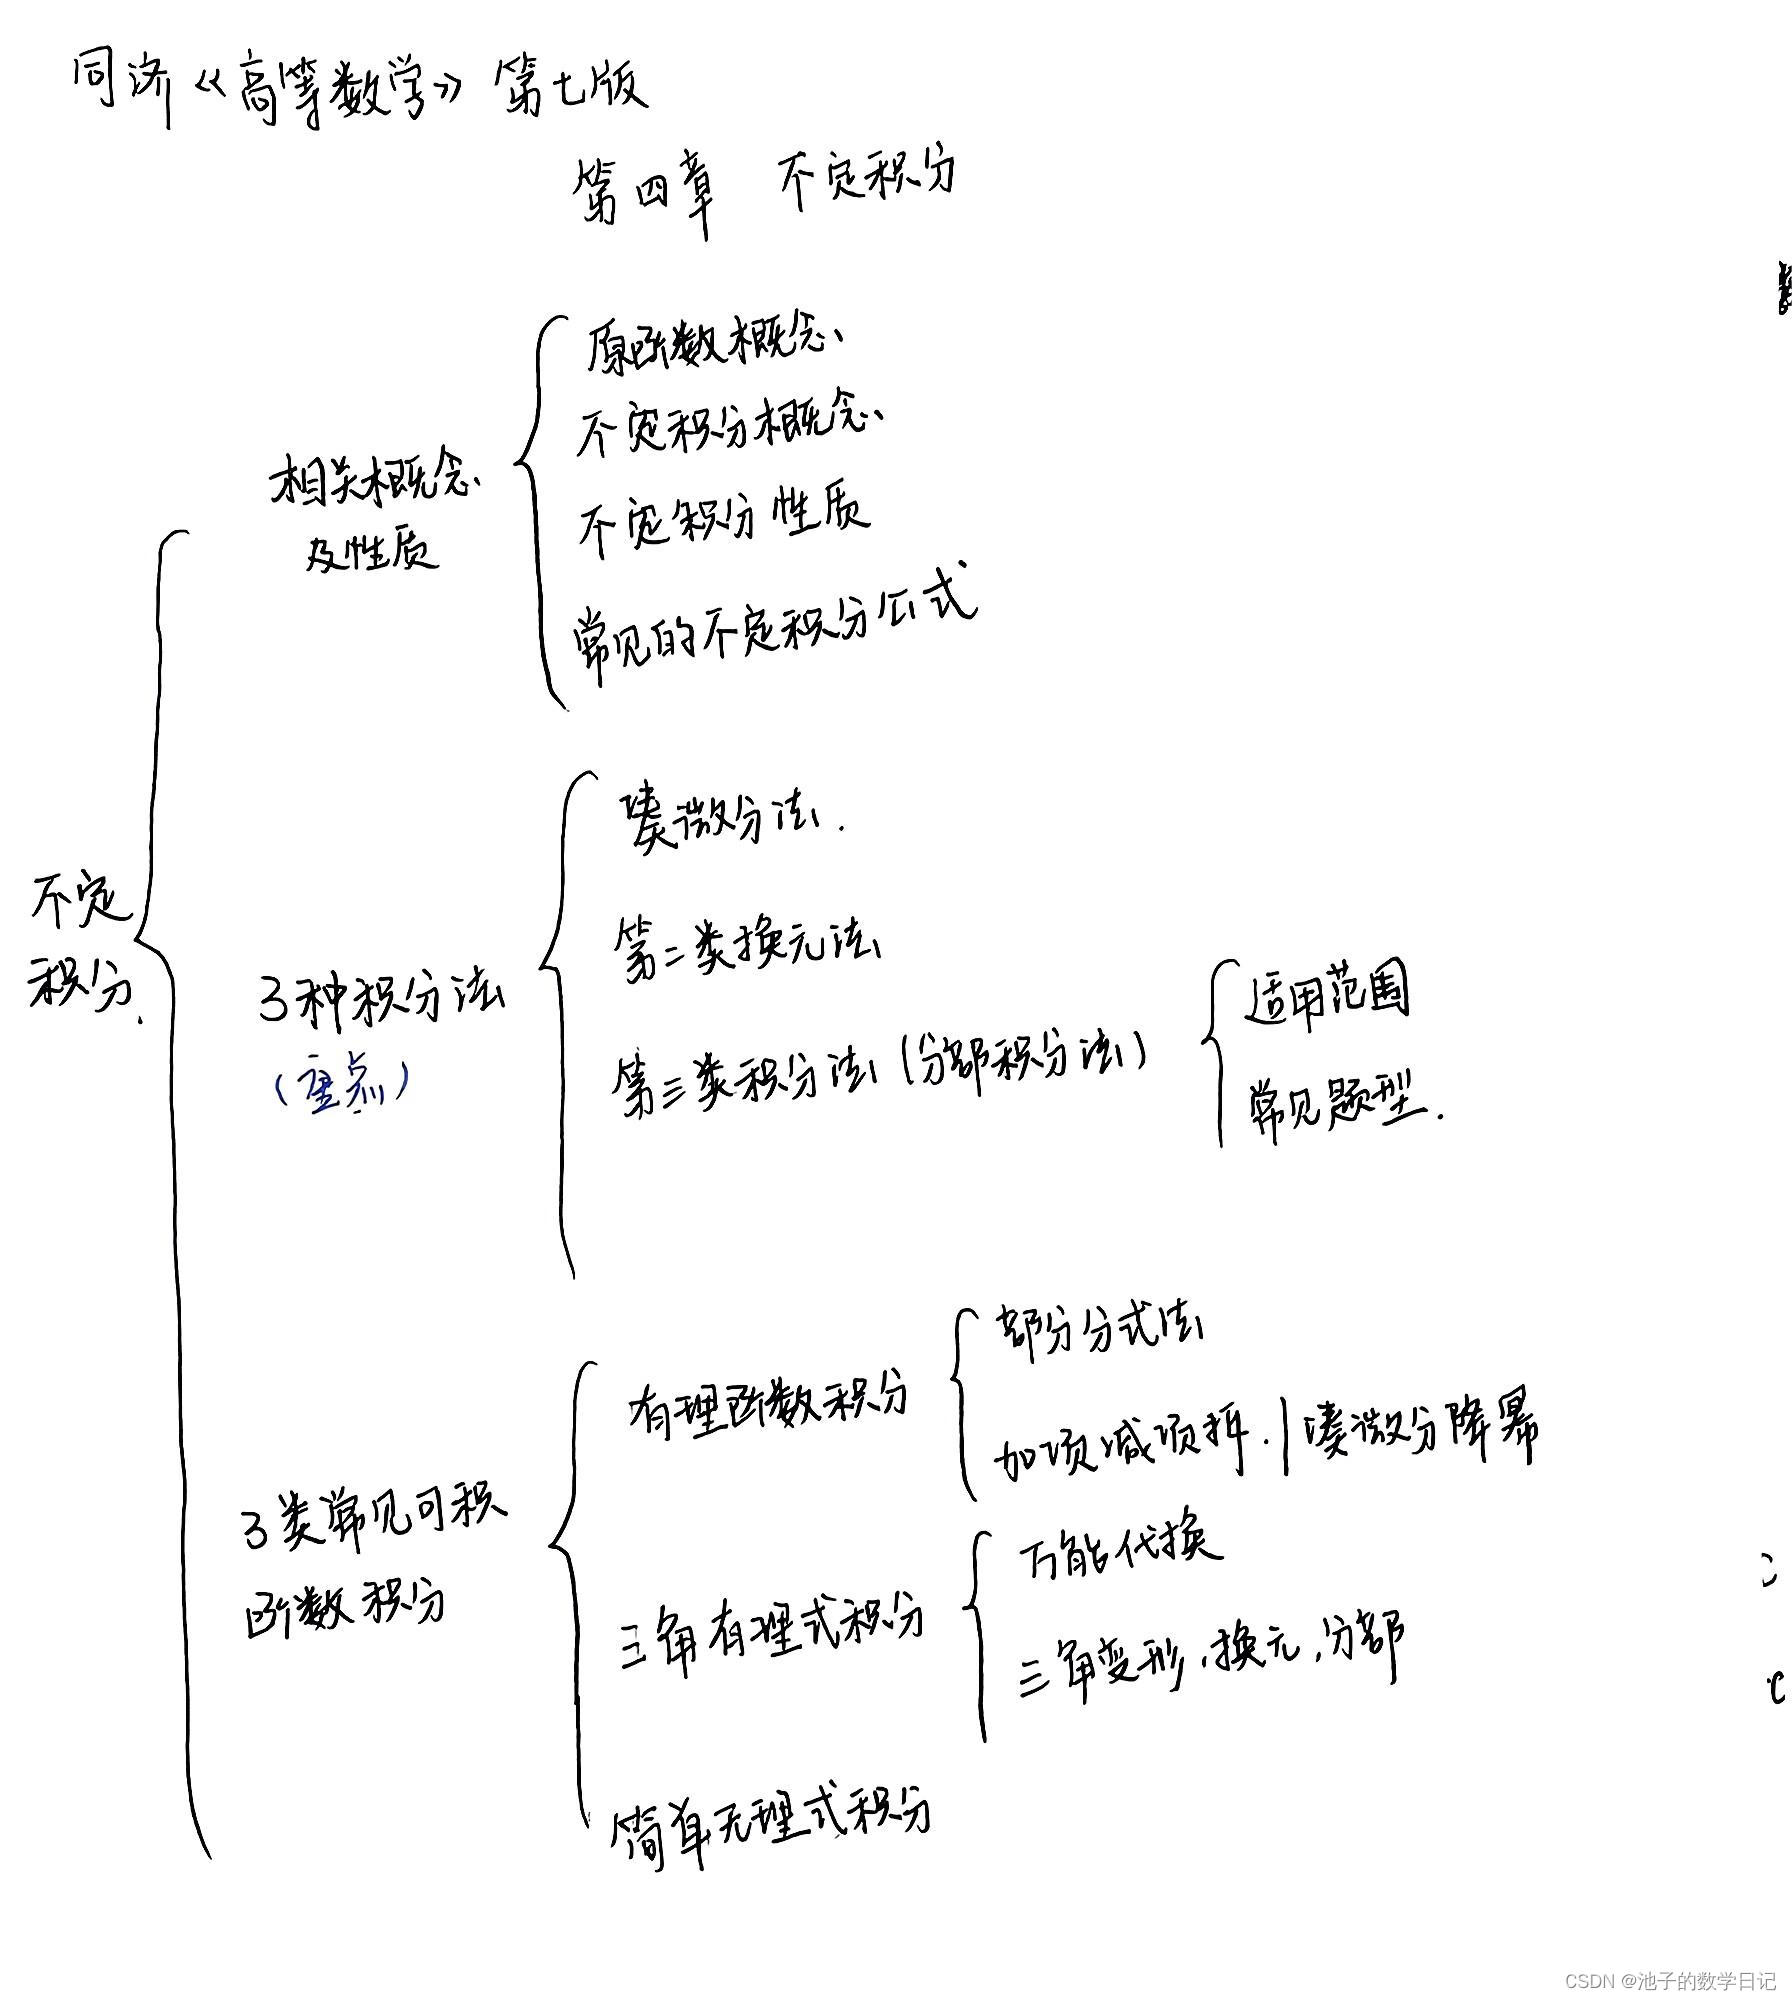 同济《高等数学》第七版
第四章 不定积分
不定
积分.
相关概念
及性质
原函数概念
不定积分概念
不定积分性质
常见的不定积分公式
3种积分法
(重点)
凑微分法.
第二类换元法
第三类积分法(分部积分法)
适用范围
常见题型.
3类常见可积
函数积分
有理函数积分
部分分式法
加项减项拆.|凑微分降幂
三角有理式积分
万能代换
三角变形,换元,分部
简单无理式积分
CSDN @池子的数学日记